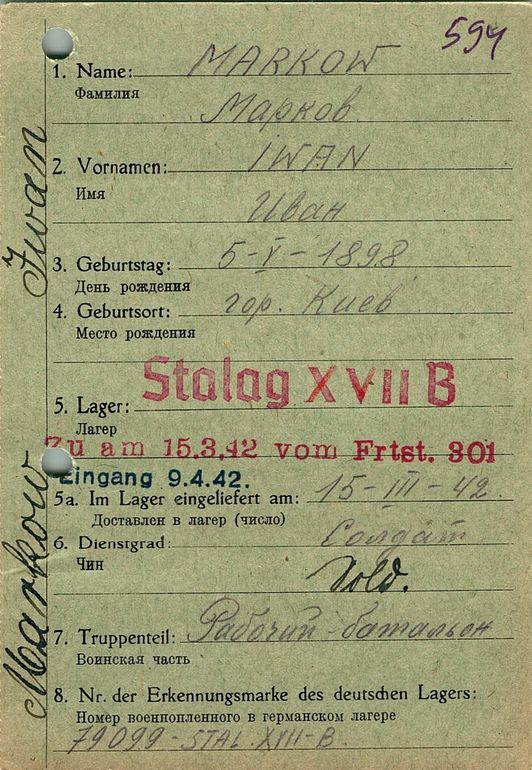 594
1. Name: MARKOW
Фамилия
Марков
2. Vornamen: IWAN
Имя
Иван
3. Geburtstag: 5-V-1898
День рождения
4. Geburtsort: гор. Киев
Место рождения
Stalag XVII B
5. Lager:
Лагер
Zu am 15.3.42 vom Frtst. 301
Eingang 9.4.42.
5a. Im Lager eingeliefert am: 15-III-42.
Доставлен в лагер (число)
6. Dienstgrad: Солдат
Чин
Sold.
7. Truppenteil: Рабочий-батальон
Воинская часть
8. Nr. der Erkennungsmarke des deutschen Lagers:
Номер военнопленного в германском лагере
79099-STAL. XVII-B.
Markow Iwan